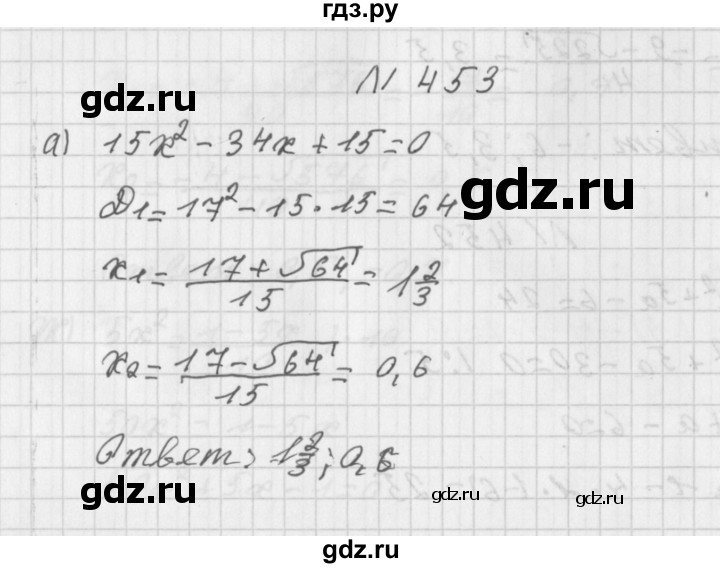 гдз.ру
gdz.ru
gdz.ru
№ 453
а) 15x² - 34x + 15 = 0
gdz.ru
D₁ = 17² - 15 · 15 = 64
x₁ = (17 + √64)/15 = 1 2/3
x₂ = (17 - √64)/15 = 0,6
Ответ: 1 2/3; 0,6
gdz.ru
gdz.ru
gdz.ru
gdz.ru